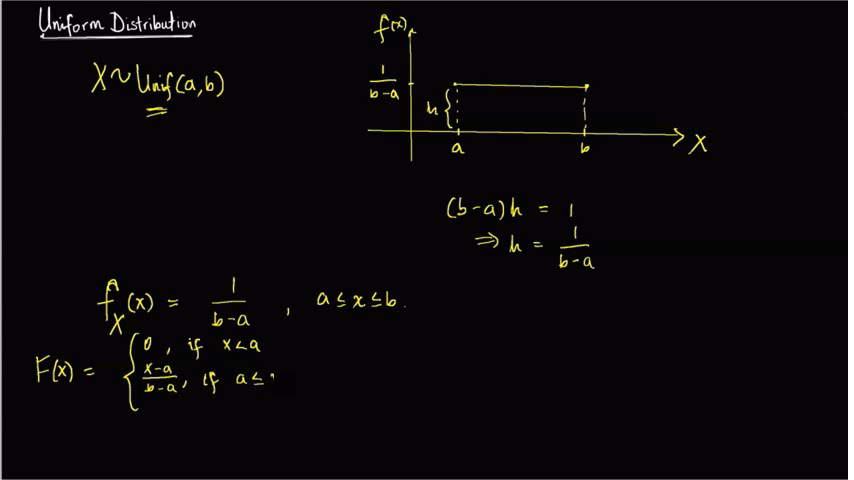 Uniform Distribution
X ~ Unif(a,b)
f(x)
1/(b-a)
h {
a
b
X
(b-a)h = 1
⇒ h = 1/(b-a)
f_X(x) = 1/(b-a) , a ≤ x ≤ b.
F(x) = {
0 , if x < a
(x-a)/(b-a) , if a ≤